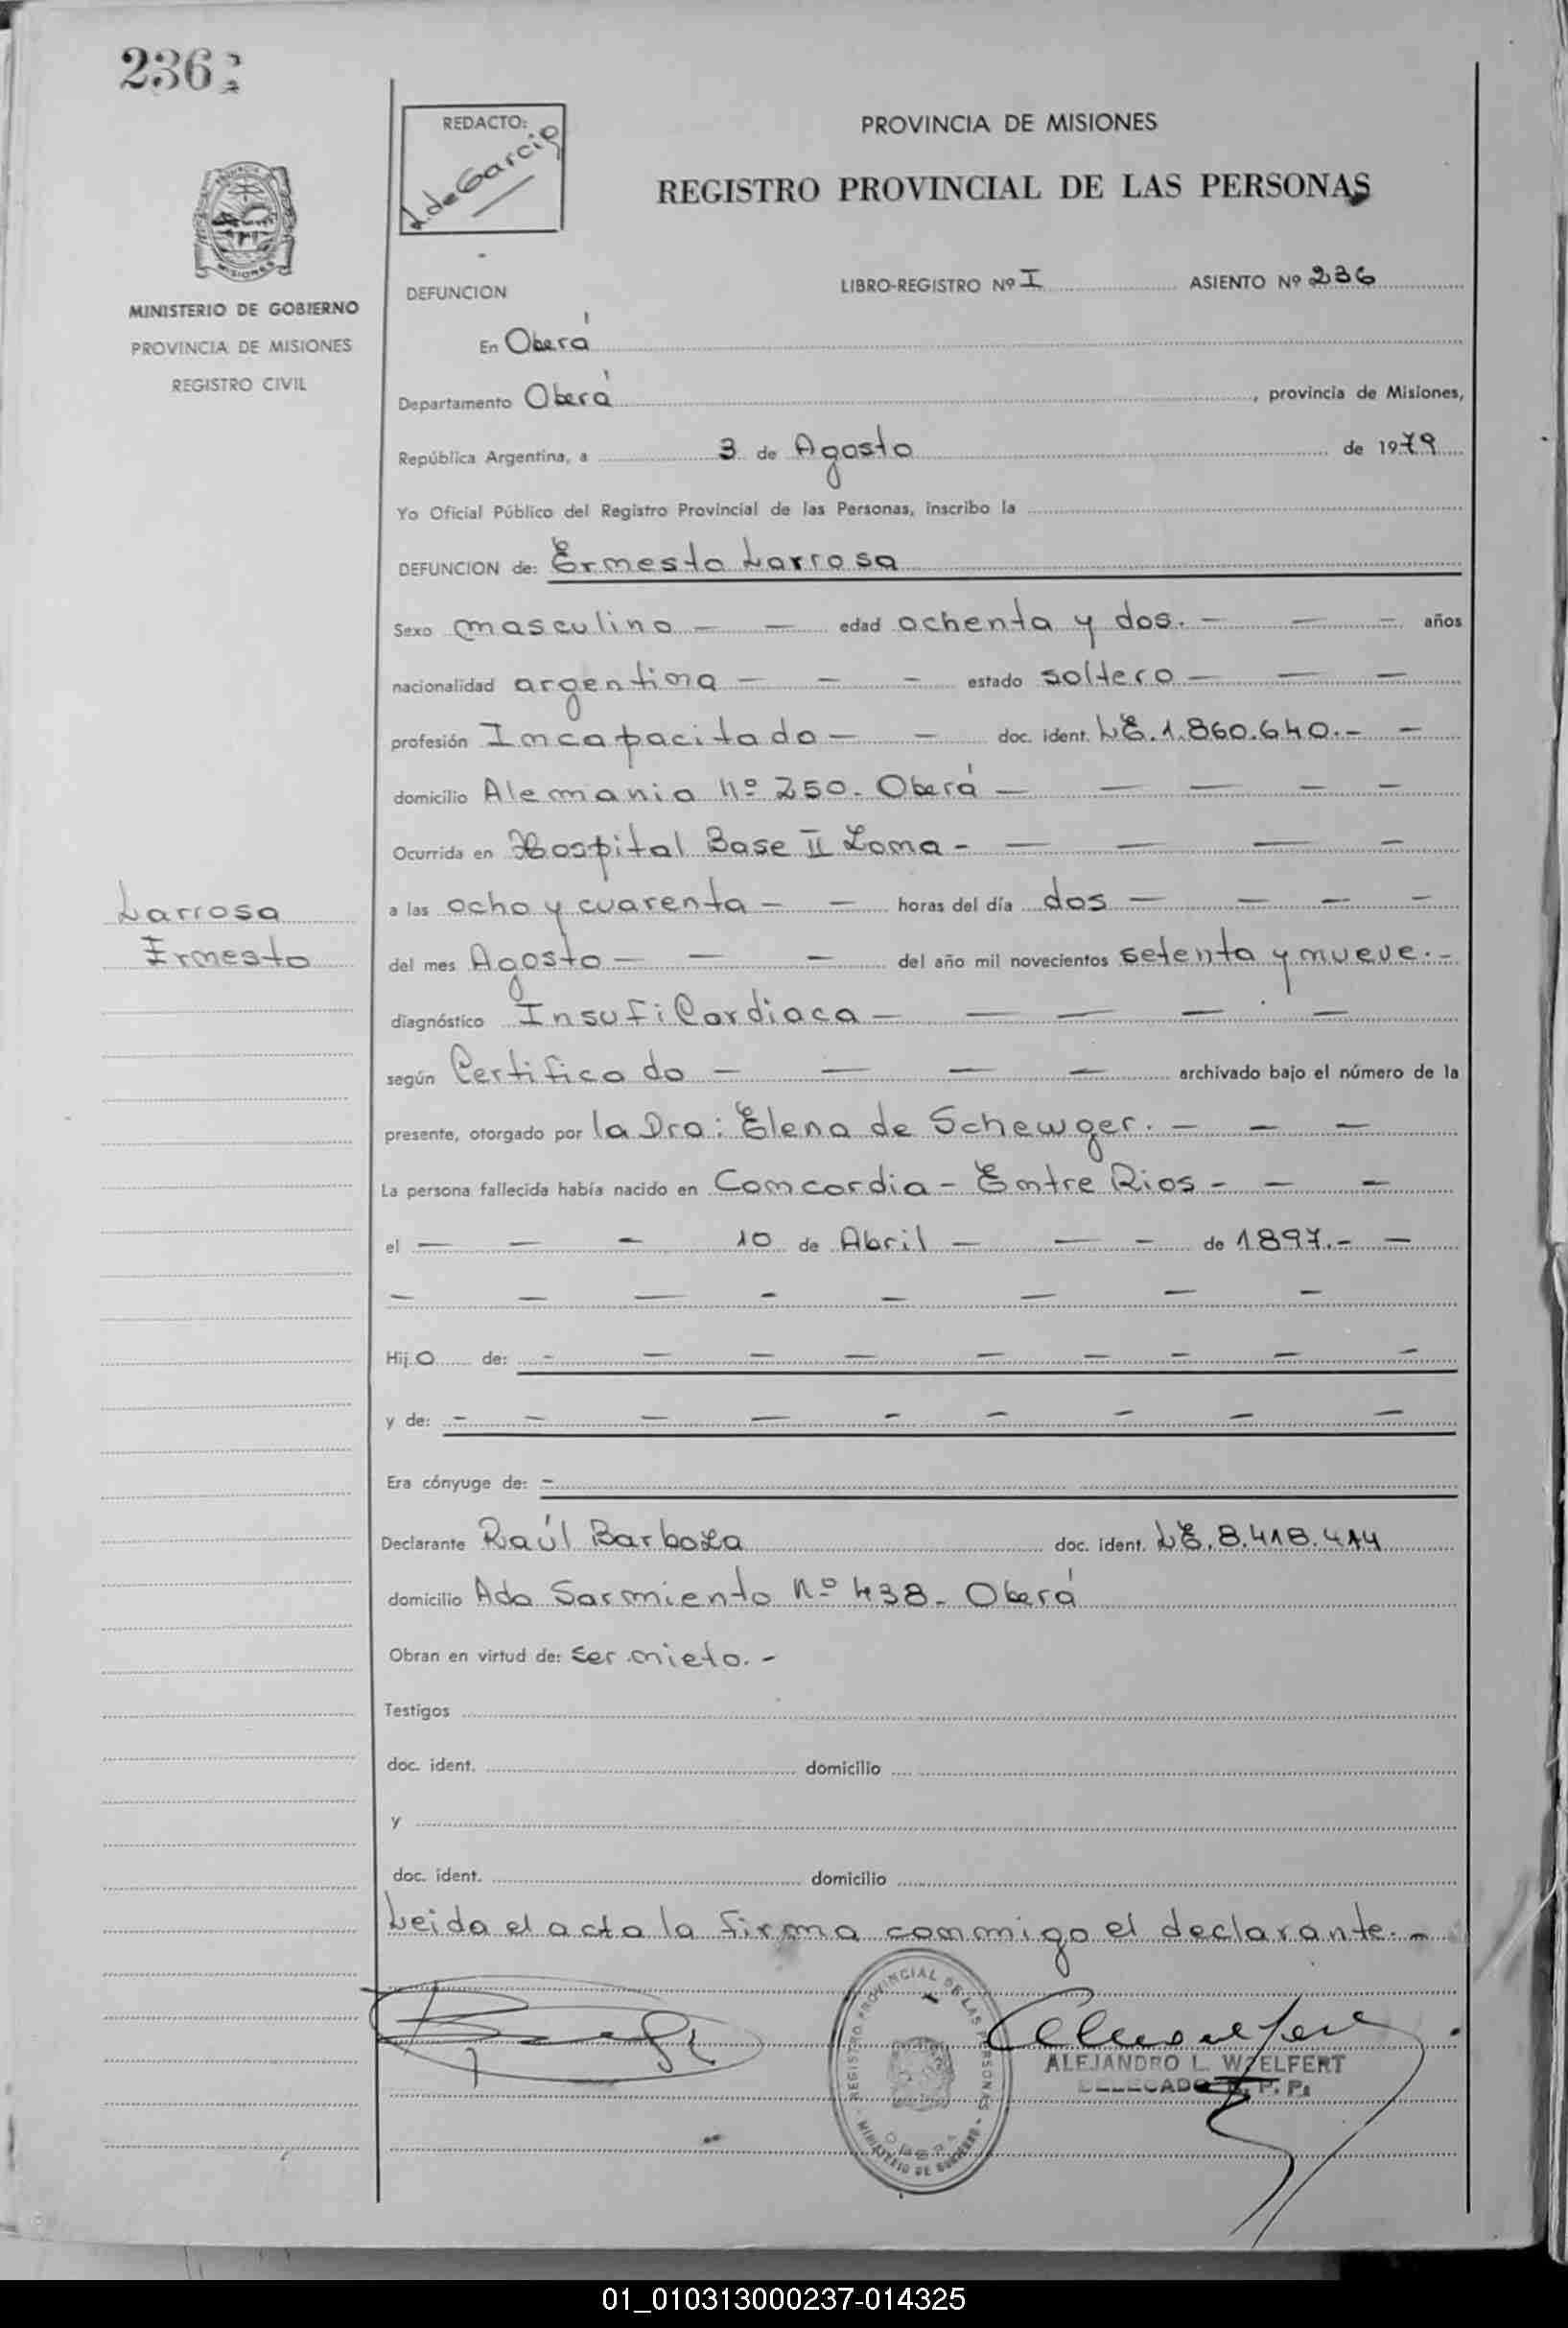 236
REDACTO:
A. de Garcia
PROVINCIA DE MISIONES
REGISTRO PROVINCIAL DE LAS PERSONAS
MISIONES
MINISTERIO DE GOBIERNO
PROVINCIA DE MISIONES
REGISTRO CIVIL
DEFUNCION
LIBRO-REGISTRO Nº I ASIENTO Nº 236
En Oberá
Departamento Oberá, provincia de Misiones,
República Argentina, a 3 de Agosto de 1979
Yo Oficial Público del Registro Provincial de las Personas, inscribo la
DEFUNCION de: Ernesto Larrosa
Sexo masculino - - edad ochenta y dos. - - - años
nacionalidad argentina - - - estado soltero - - -
profesión Incapacitado - - doc. ident. LE. 1.860.640. - -
domicilio Alemania Nº 250. Oberá - - - - -
Ocurrida en Hospital Base II Loma - - - - -
Larrosa
Ernesto
a las ocho y cuarenta - - horas del día dos - - - -
del mes Agosto - - - del año mil novecientos setenta y nueve. -
diagnóstico Insufi Cardiaca - - - - -
según Certificado - - - - archivado bajo el número de la
presente, otorgado por la Dra: Elena de Schewger. - - -
La persona fallecida había nacido en Concordia - Entre Rios - - -
el - - - 10 de Abril - - - de 1897. - -
- - - - - - - -
Hijo de: - - - - - - - - -
y de: - - - - - - - - -
Era cónyuge de: -
Declarante Raúl Barboza doc. ident. LE. 8.418.414
domicilio Ada Sarmiento Nº 438. Oberá
Obran en virtud de: ser nieto. -
Testigos
doc. ident. domicilio
y
doc. ident. domicilio
Leida el acta la firma conmigo el declarante. -
REGISTRO PROVINCIAL DE LAS PERSONAS
OBERA
MINISTERIO DE GOBIERNO
ALEJANDRO L. WELFERT
DELEGADO R. P. P.
01_010313000237-014325